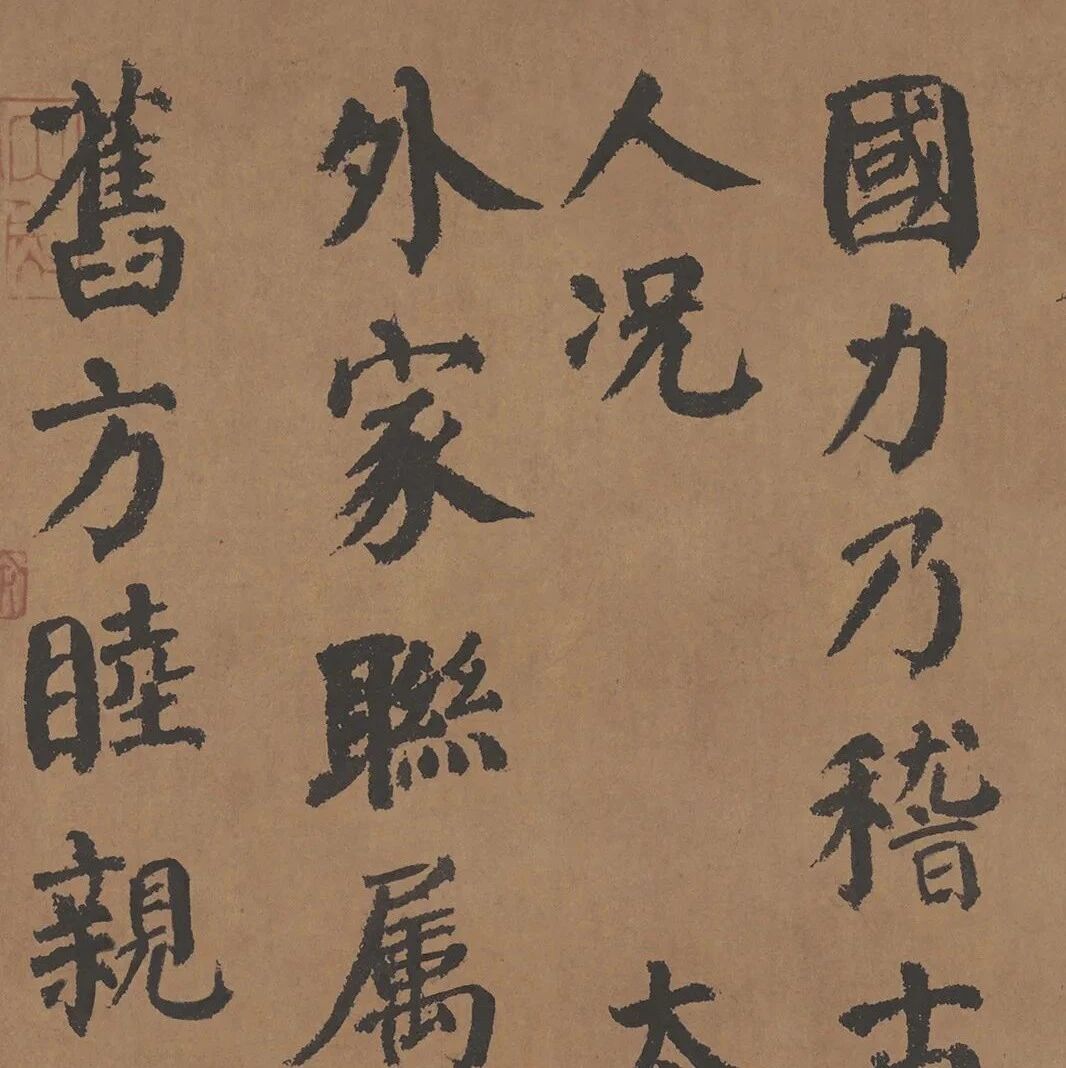 國力乃稽古
人况
外家聯属
舊方睦親